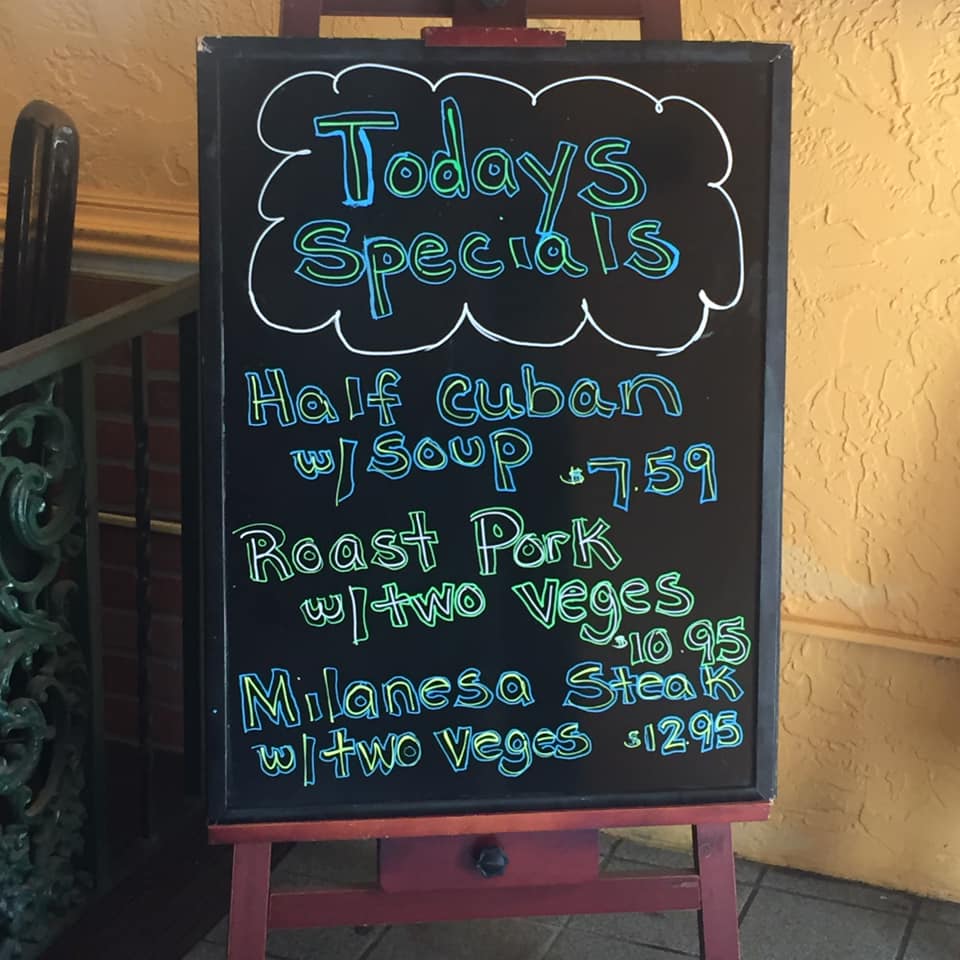 Todays
Specials
Half Cuban
w/ Soup $7.59
Roast Pork
w/two Veges
$10.95
Milanesa Steak
w/two Veges $12.95